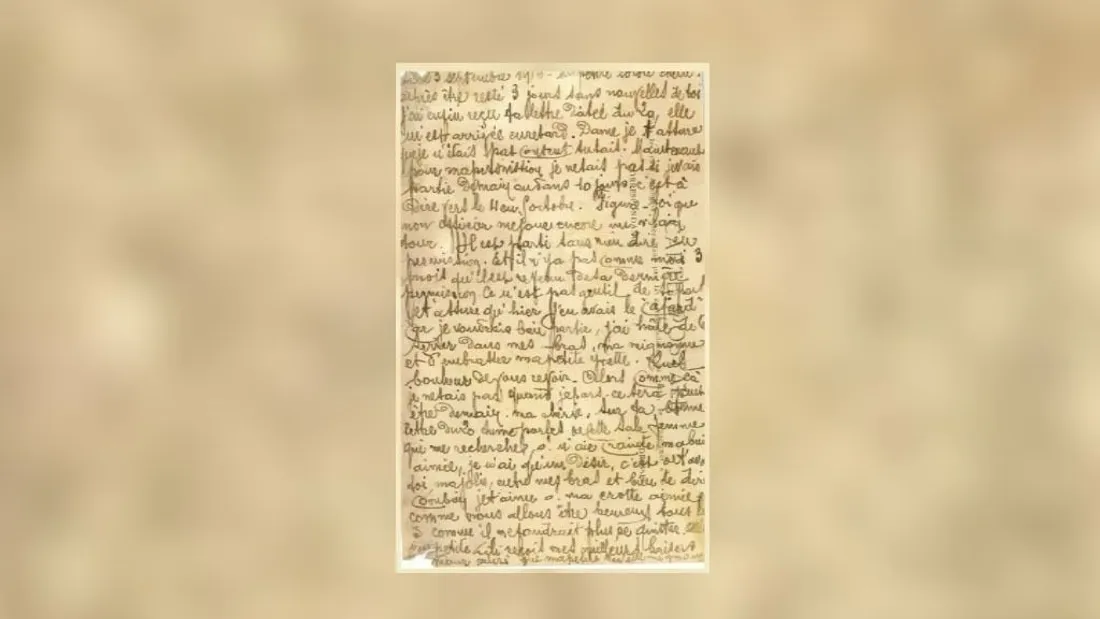 3 septembre
après être resté 3 jours sans nouvelles de toi
j'ai enfin reçu ta lettre datée du 29, elle
qui est arrivée en retard. Dame je t'assure
que je n'étais pas content
pour ma permission je ne sais pas si je vais
partir demain ou dans 10 jours c'est à
dire vers le 1er octobre. Figure-toi que
mon officier me joue encore un vilain
tour. Il est parti sans rien dire en
permission. Et il n'y a pas 3
mois qu'il est revenu de sa dernière
permission Ce n'est pas gentil de
je t'assure qu'hier j'en avais le cafard
car je voudrais bien partir, j'ai hâte de te
serrer dans mes bras, ma mignonne
et d'embrasser ma petite. Quel
bonheur de vous revoir. Alors comme ça
je ne sais pas quand je pars ce sera peut
être demain. ma chérie, sur ta
lettre du 20 tu me parles de cette sale femme
qui me recherche, n'aie crainte ma bien
aimée, je n'ai qu'un désir, c'est
toi, ma jolie, entre mes bras et bien te dire
je t'aime. ma crotte aimée
comme nous allons être heureux tous les
3 comme il ne faudrait plus se quitter.
petite reçois mes meilleurs baisers
que ma petite